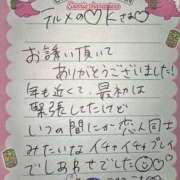 テルメの♡Kさま♡
お誘い頂いて
ありがとうございました!
年も近くて、最初は
緊張してたけど
いつの間にか恋人同士
みたいなイチャイチャプレイ
でしあわせでした♡